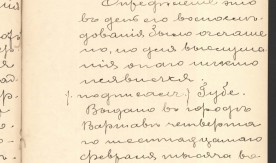 Определение это
въ день его воспослѣ-
дованія, было оглаше-
но, но для выслуша-
нія онаго никто
не явился
/подписалъ/ Губе.
Выдано въ городѣ
Варшавѣ четверта-
го шестнадцатаго
февраля тысяча во-